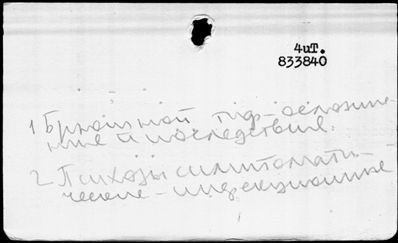 4иТ.
833840
1 Брюшной тиф - осложне-
ние и последствия.
2 Психозы симптомати-
ческие - инфекционные